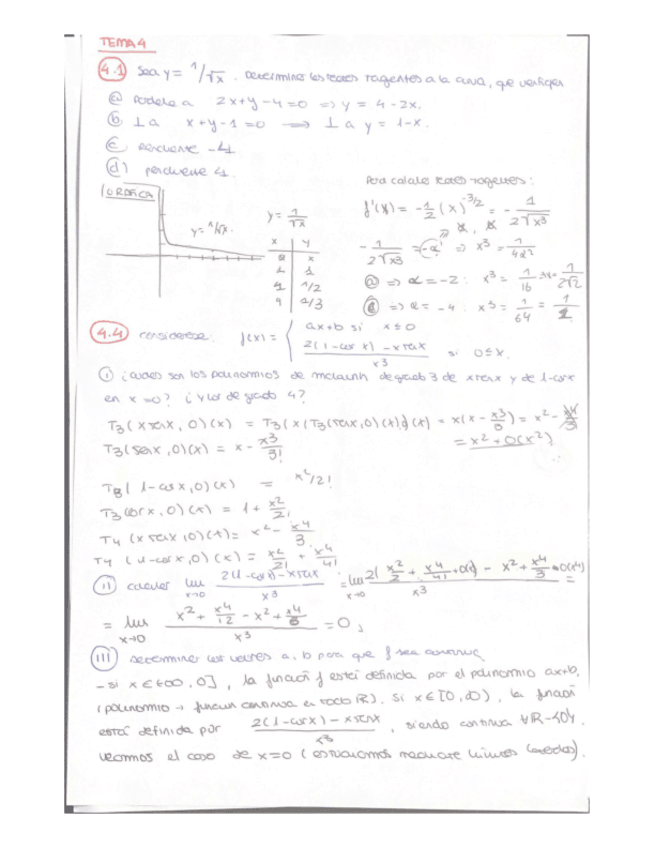 TEMA 4
4.1 Sea y = 1/√x. Determinar las rectas tangentes a la curva, que verifiquen
a) Paralela a 2x+y-4=0 => y = 4-2x.
b) ⊥ a x+y-1=0 => ⊥ a y = 1-x.
c) Pendiente -4
d) pendiente 4.
GRÁFICA
y = 1/√x
y = 1/√x
x y
1 1
4 1/2
9 1/3
Para calcular rectas tangentes:
f'(x) = -1/2 (x)^-3/2 = - 1/2√x³
- 1/2√x³ = α => x³ = 1/4α²
a) => α = -2 : x³ = 1/16
c) => α = -4 : x³ = 1/64 =
4.4 Considérese: f(x) = { ax+b si x ≤ 0
2(1-cos x) - x sen x / x³ si 0 ≤ x.
i) ¿Cuáles son los polinomios de mclaurin de grado 3 de x sen x y de 1-cos x
en x=0? ¿Y los de grado 4?
T3(x sen x, 0)(x) = T3(x(T3(sen x, 0)(x)))(x) = x(x - x³/6) = x² -
T3(sen x, 0)(x) = x - x³/3! = x² + O(x²)
T3(1-cos x, 0)(x) = x²/2!
T3(cos x, 0)(x) = 1 + x²/2!
T4(x sen x, 0)(x) = x² - x⁴/3
T4(1-cos x, 0)(x) = x²/2! + x⁴/4!
ii) calcular lim x→0 2(1-cos x) - x sen x / x³ = lim x→0 2(x²/2 + x⁴/4! + O(x)) - x² + x⁴/3 + O(x⁴) / x³ =
= lim x→0 x² + x⁴/12 - x² + x⁴/6 / x³ = 0;
iii) Determinar los valores a, b para que f sea continua
- si x ∈ (-∞, 0], la función f está definida por el polinomio ax+b,
(polinomio → función continua en todo ℝ). Si x ∈ [0, ∞), la función
está definida por 2(1-cos x) - x sen x / x³, siendo continua ∀ℝ-{0}.
Veamos el caso de x=0 (estudiamos mediante límites laterales).